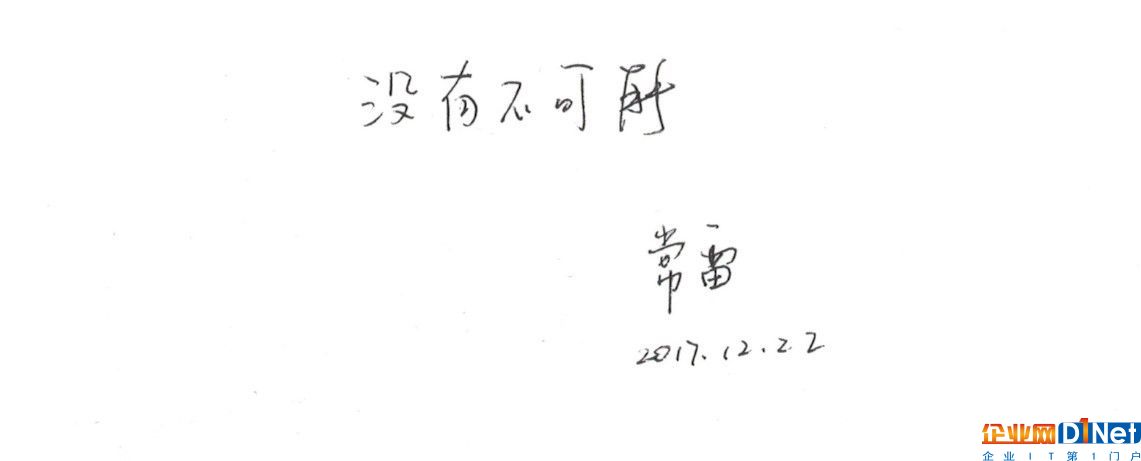 没有不可能
常雷
2017.12.22
企业网D1Net
企业IT第1门户